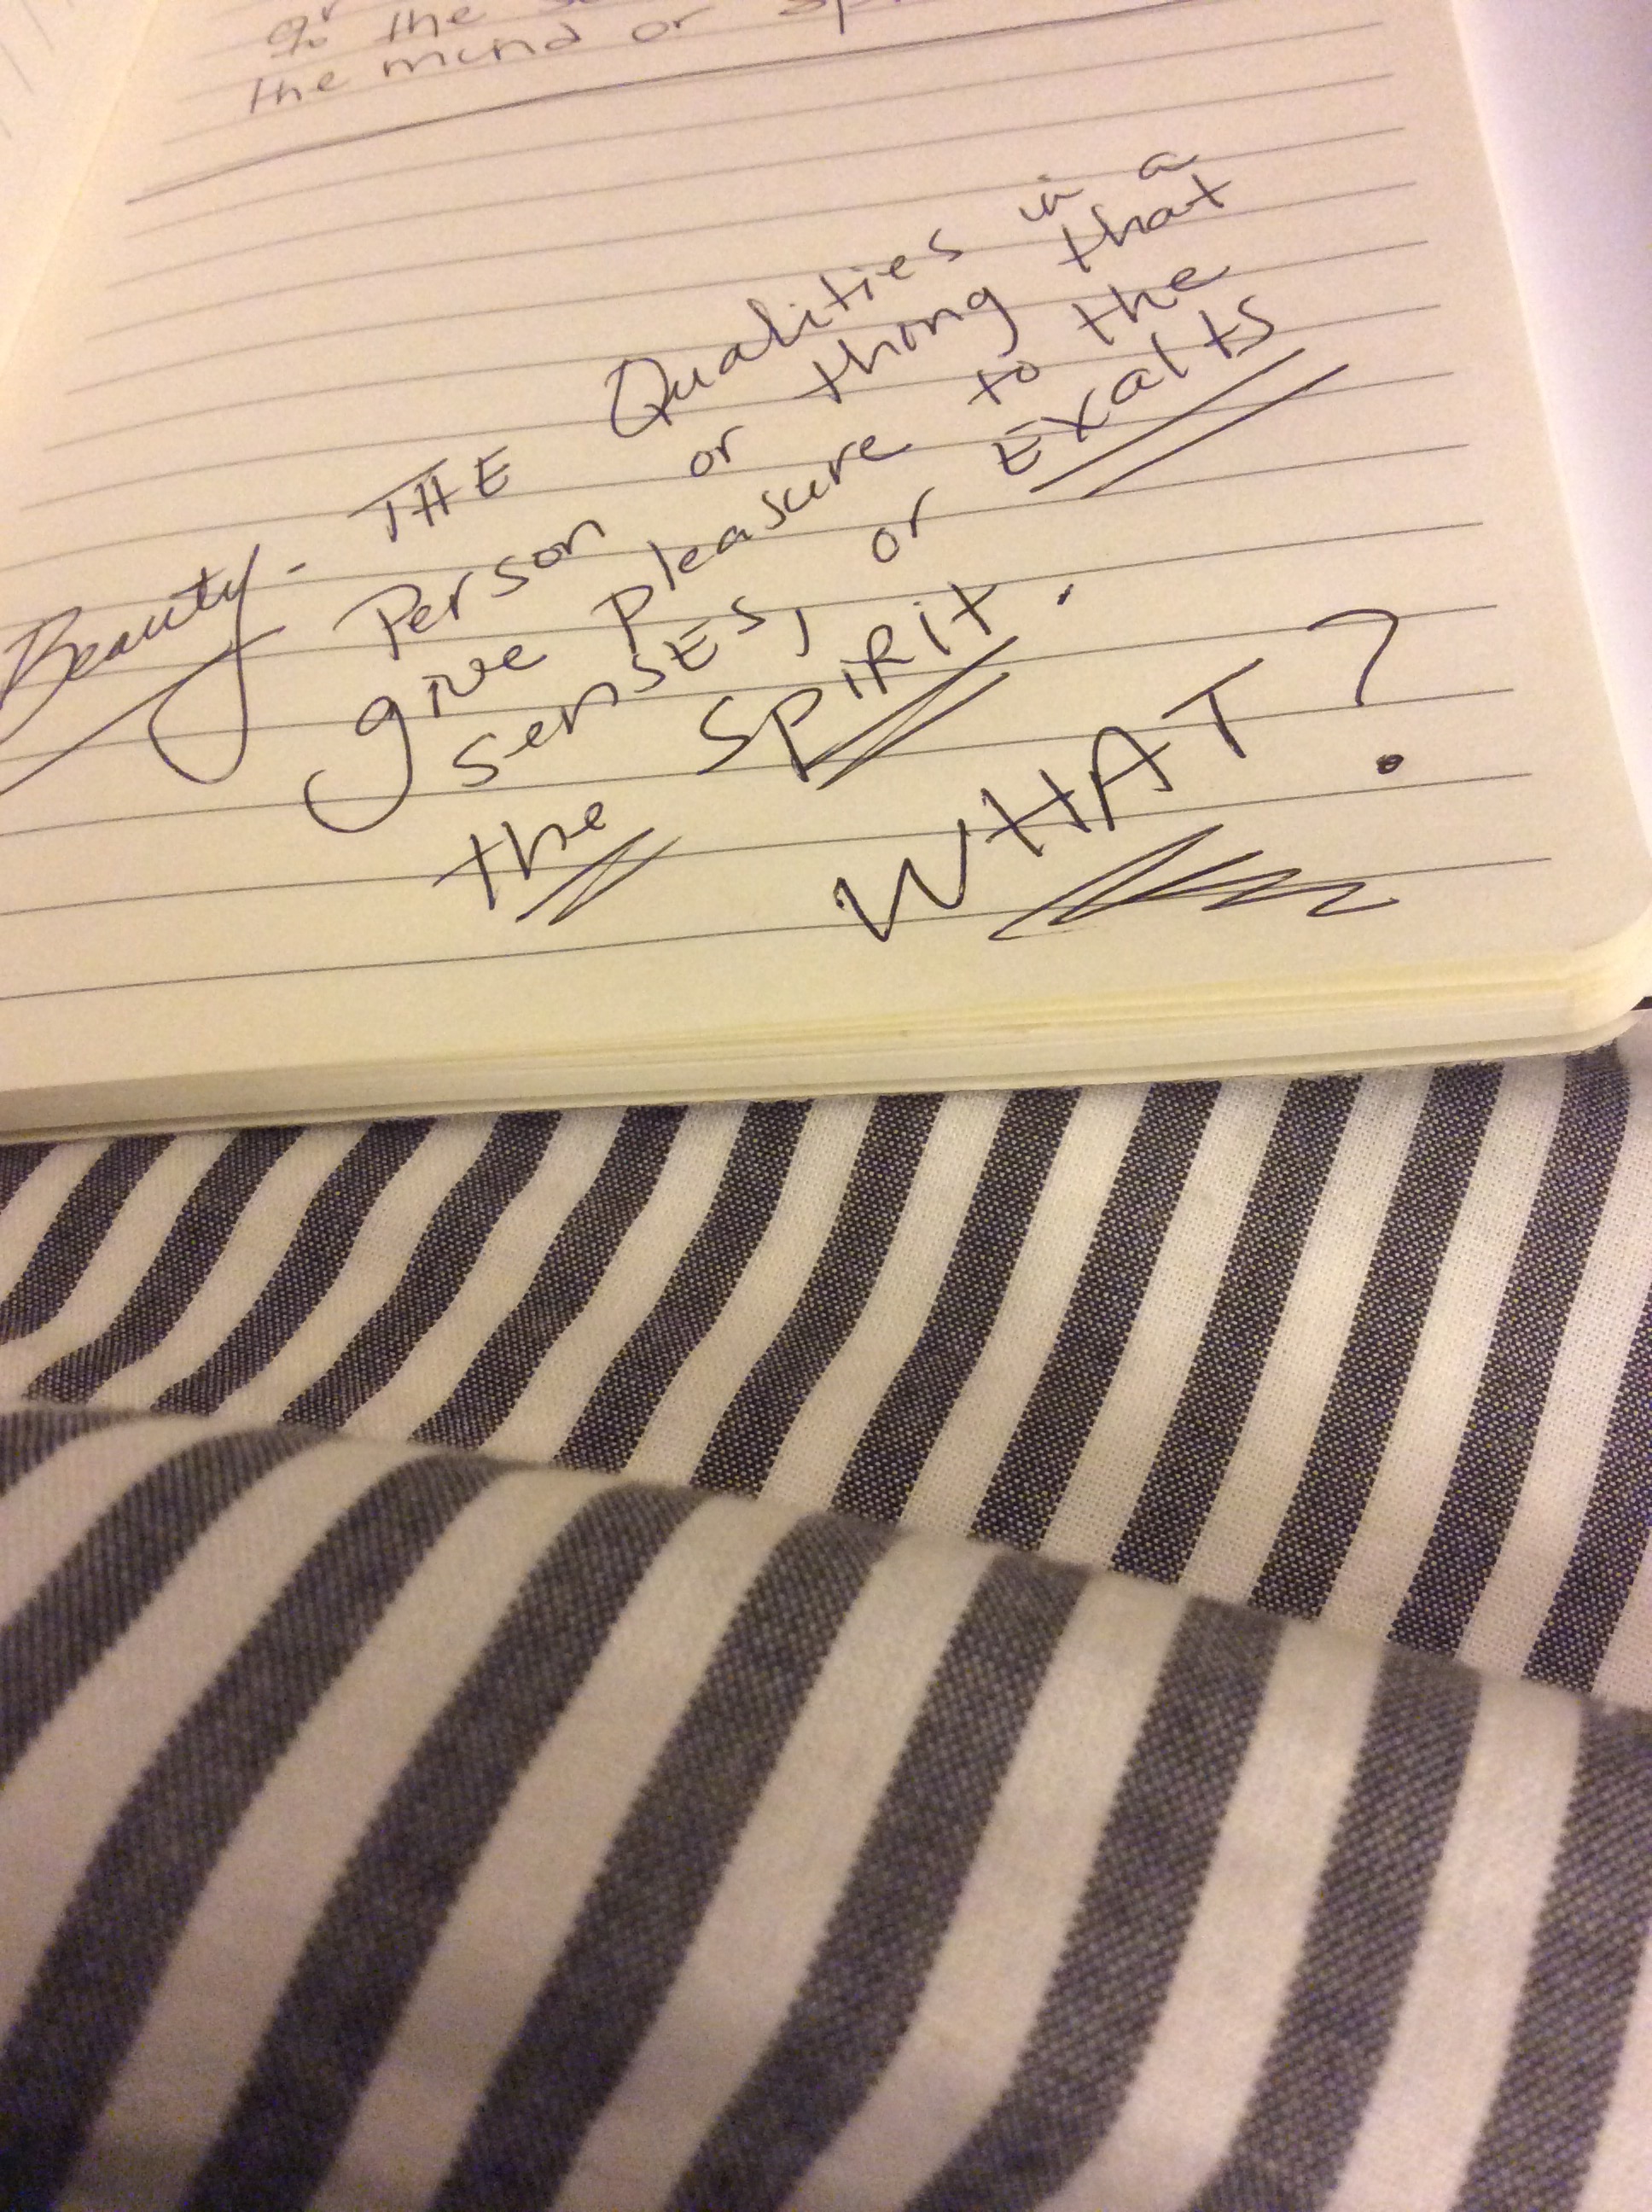 the
the mind or
Beauty - THE Qualities in a
Person or thing that
give pleasure to the
senSES, or Exalts
the SPIRIT.
WHAT?